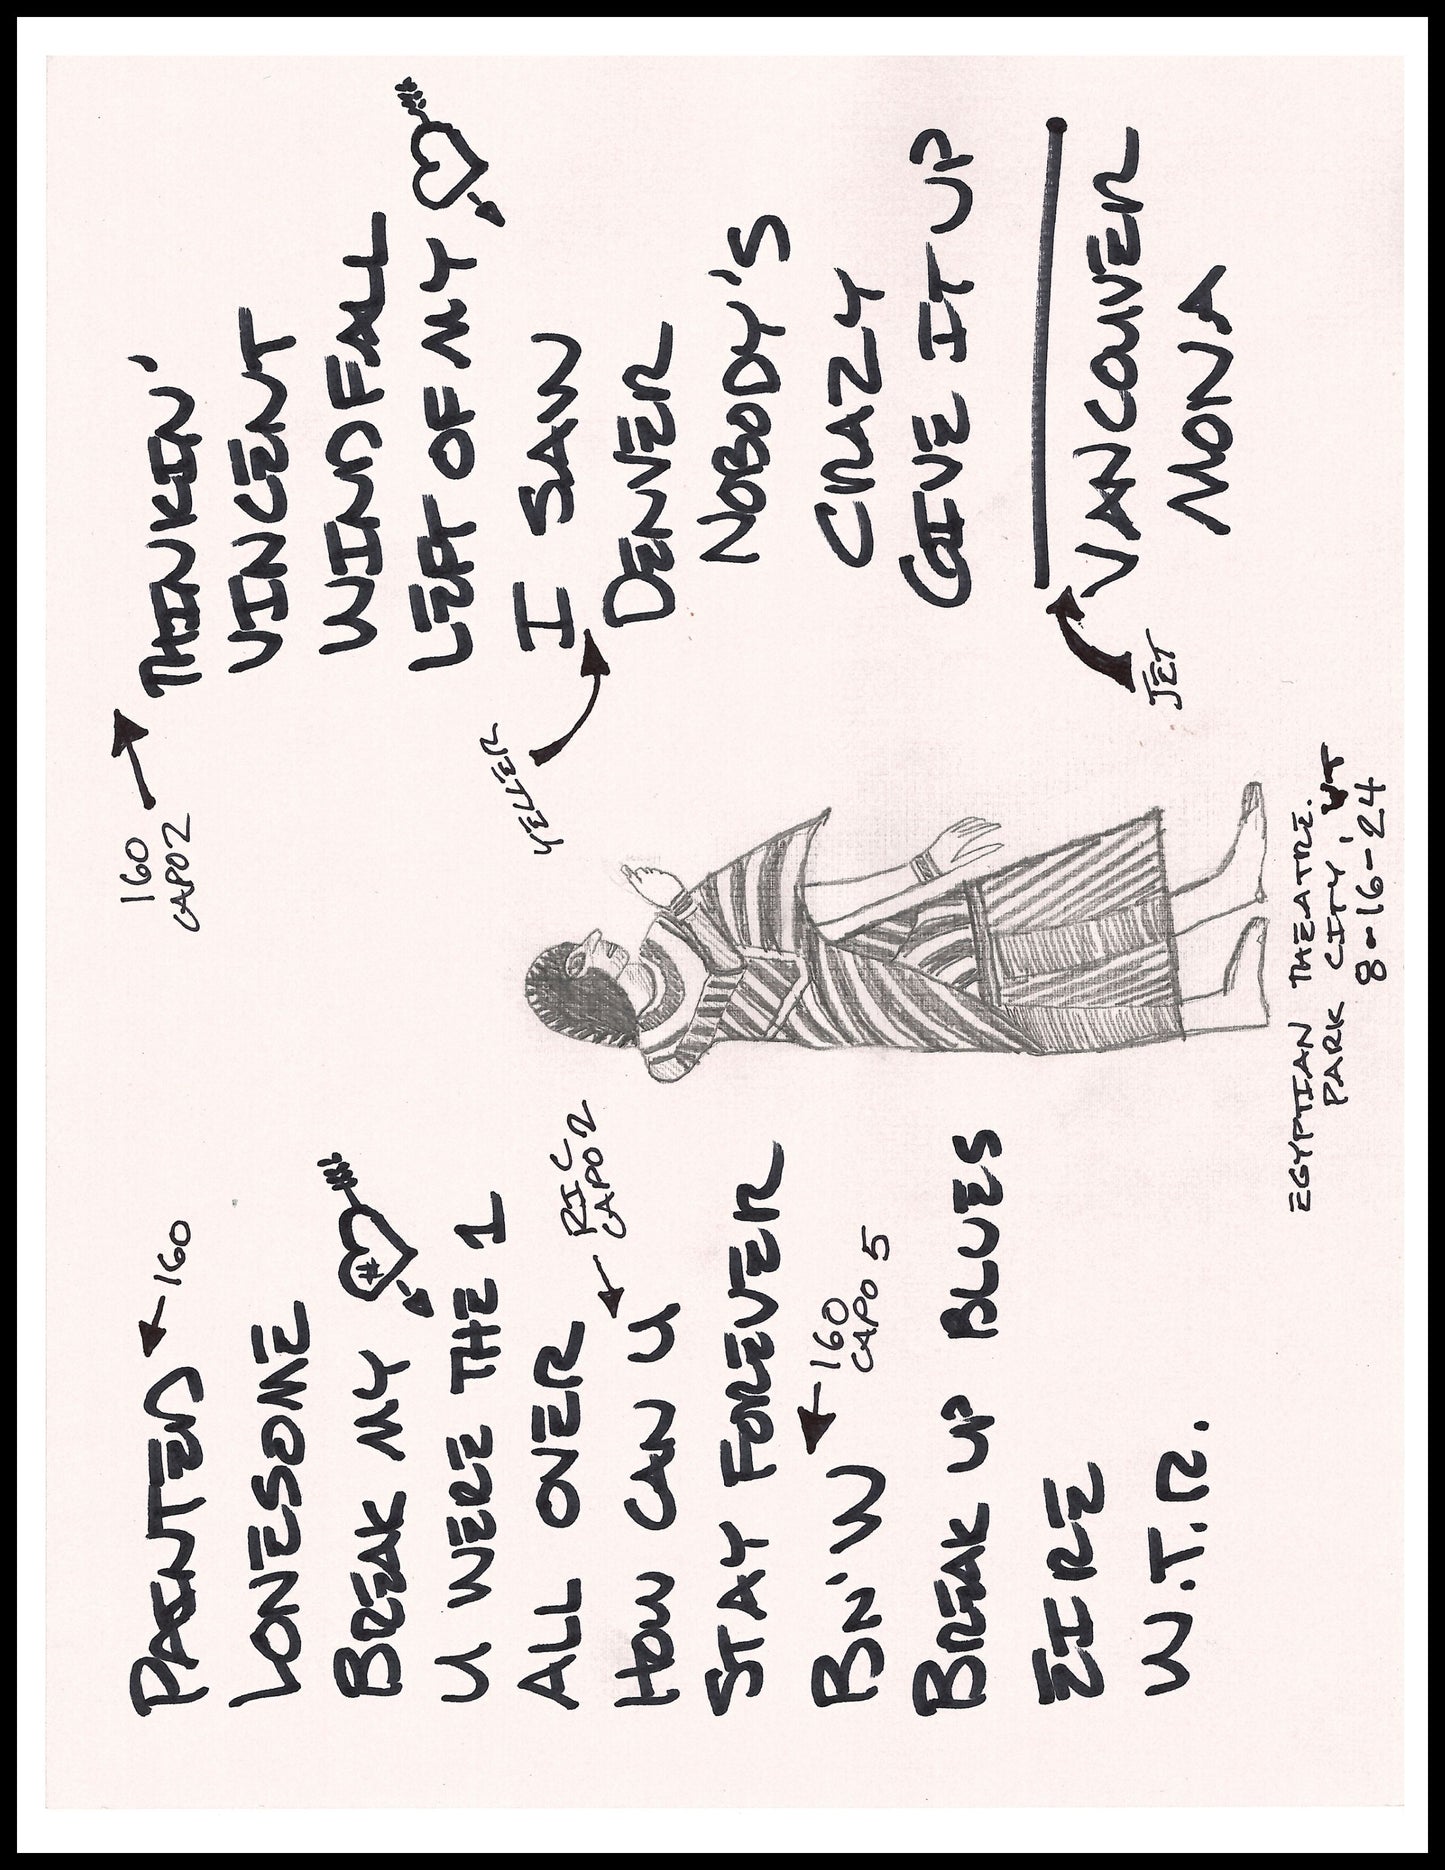 PAINTED
160
LONESOME
BREAK MY
#
U WERE THE 1
ALL OVER
HOW CAN U
RIC
CAPO 2
STAY FOREVER
BN'W
160
CAPO 5
BREAK UP BLUES
EIRE
W.T.R.
160
CAPO 2
THINKIN'
VINCENT
WINDFALL
LEFT OF MY
I SAW
YELLER
DENVER
NOBODY'S
CRAZY
GIVE IT UP
JET
VANCOUVER
MONA
EGYPTIAN THEATRE.
PARK CITY, UT
8-16-'24